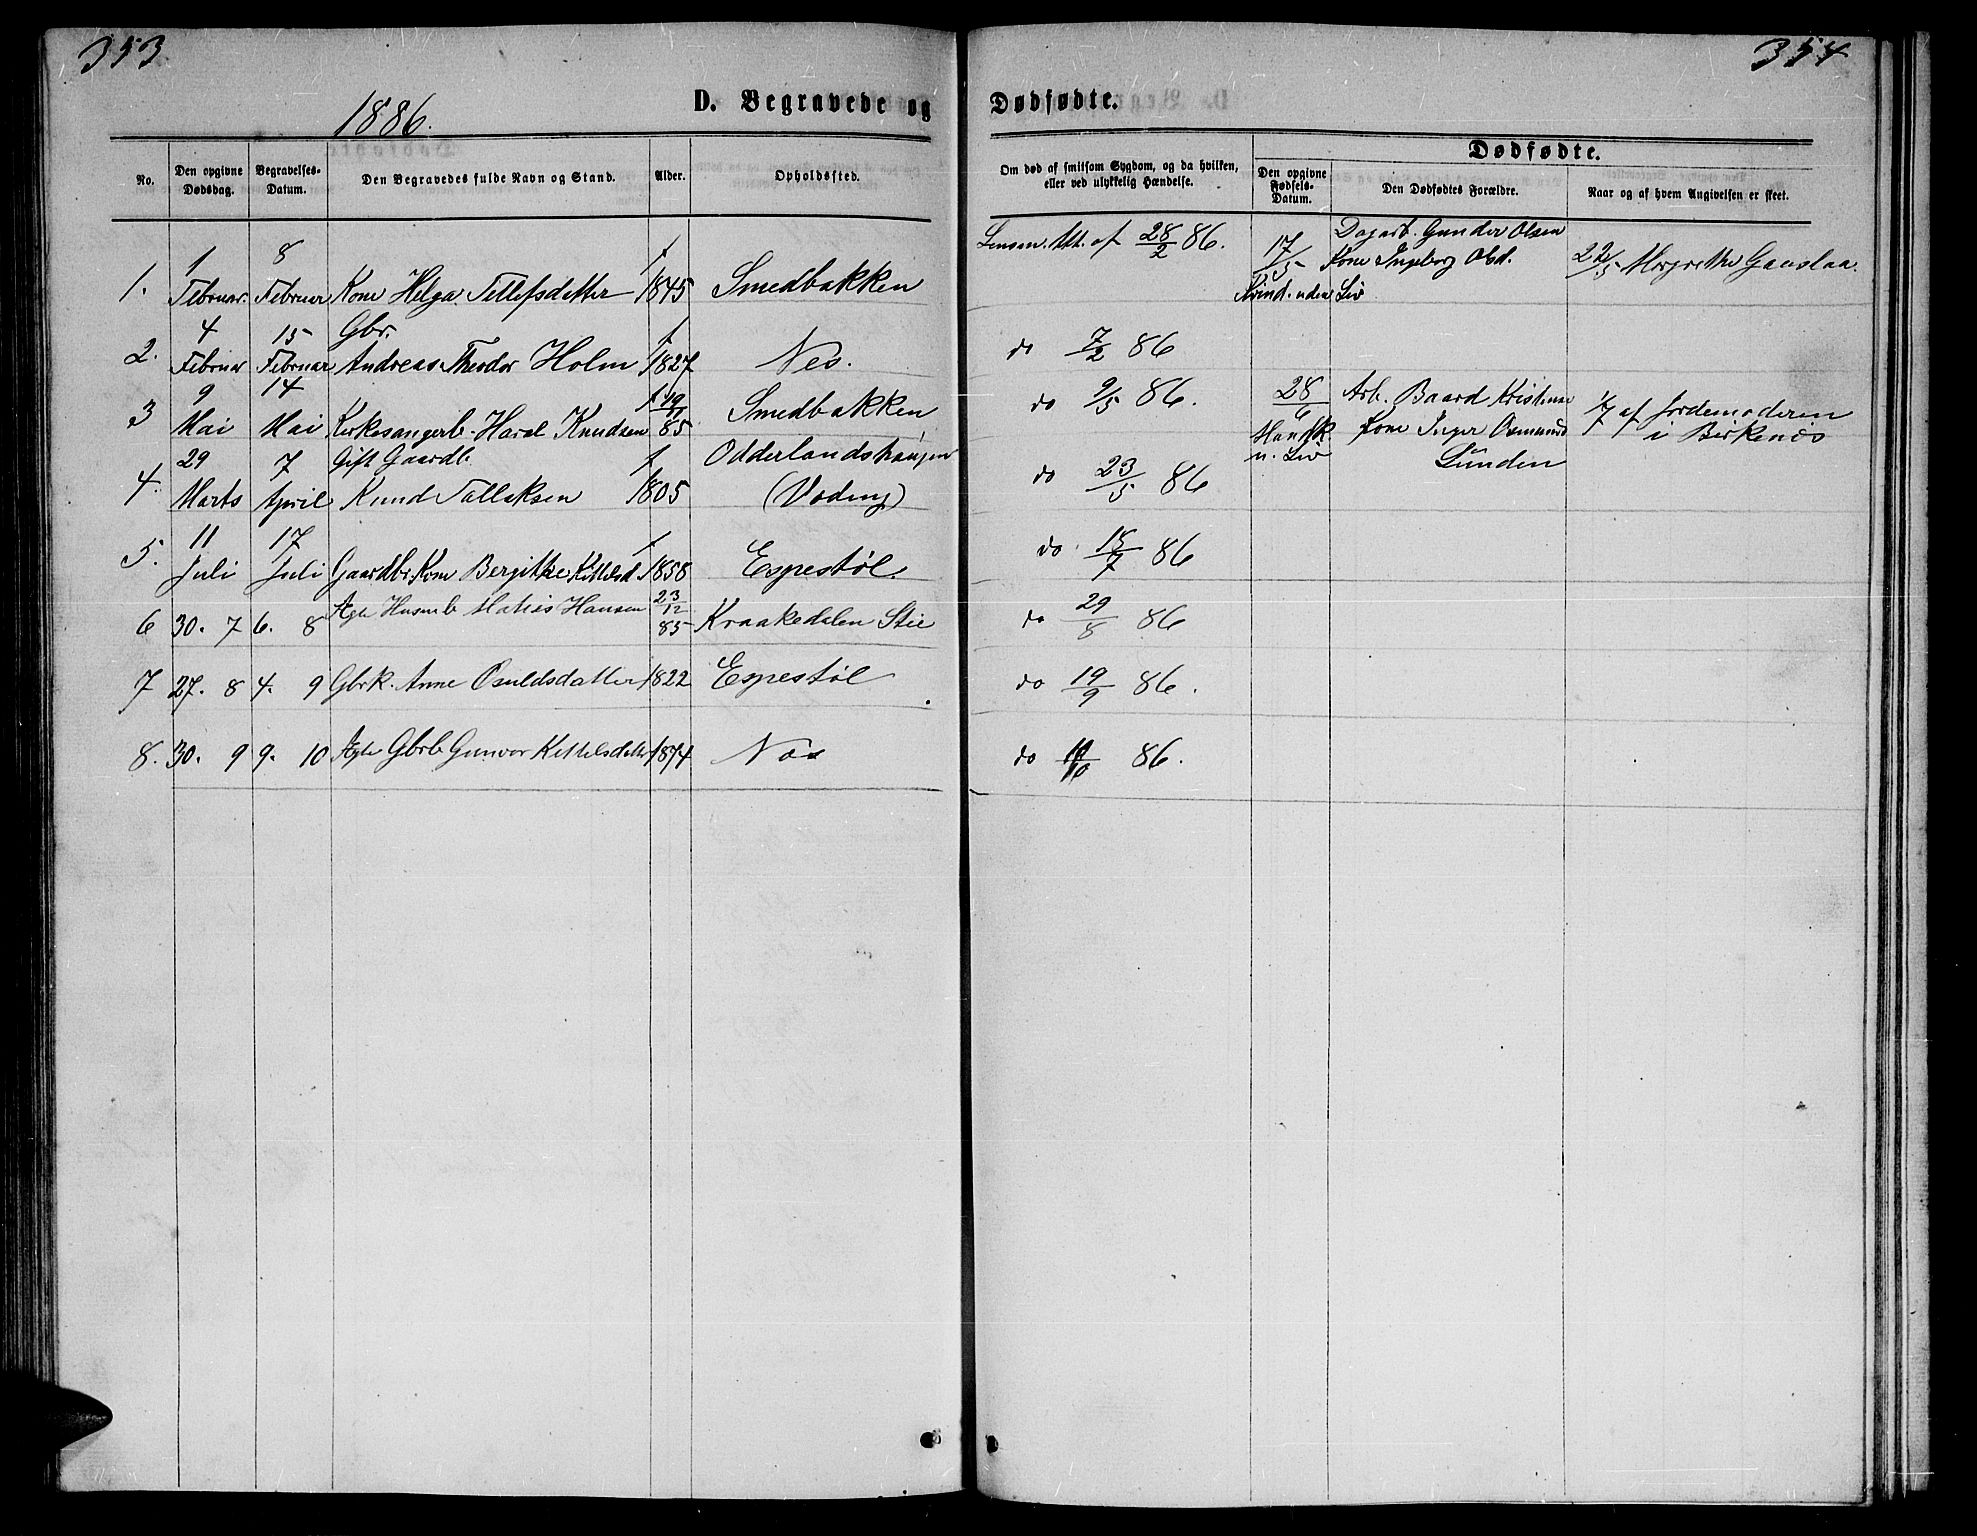 353
354
1886.
D. Begravede og Dødfødte.
No.
Den opgivne Dødsdag.
Begravelses-Datum.
Den Begravedes fulde Navn og Stand.
Alder.
Opholdssted.
Om død af smitsom Sygdom, og da hvilken, eller ved ulykkelig Hændelse.
Dødfødte.
Den opgivne Fødsels-Datum.
Den Dødfødtes Forældre.
Naar og af hvem Angivelsen er skeet.
1. 1 Februar. 8 Februar Kone Helga Tellefsdatter 1845 Smedbakken
Lensm. Att. af 28/2 86.
17/5 Kvind. uden Liv
Dagarb. Gunder Olsen
Kone Ingeborg Olsd.
22/5 Margrethe Gauslaa.
2. 4 Februar 15 Februar Gbr. Andreas Theodor Holm 1827 Nes.
do 7/2 86
3 9 Mai 14 Mai Kirkesangerb. Haral Knudsen 19/11 85 Smedbakken
do 9/5 86.
28/6 Hank. u. Liv
Arb. Baard Kristense
Kone Inger Osmunds
Lunden
1/7 af Jordemoderen
i Birkenæs
4. 29 Marts 7 April Gift Gaardb. Knud Tallaksen 1805 Odderlandshaugen
do 23/5 86
5. 11 Juli 17 Juli Gaardbr. Kone Bergitte Kittelsd. 1858 Espestøl.
do 18/7 86
6 30. 7 6. 8 Ægte Husmb Matias Hansen 23/12 85 Kraakedalen Stie
do 29/8 86
7 27. 8 4. 9 Gbrk. Anne Osuldsdatter 1822 Espestøl
do 19/9 86.
8. 30. 9 9. 10 Ægte Gbrb Gunvor Kittelsdatter 1874 Nes
do 86.